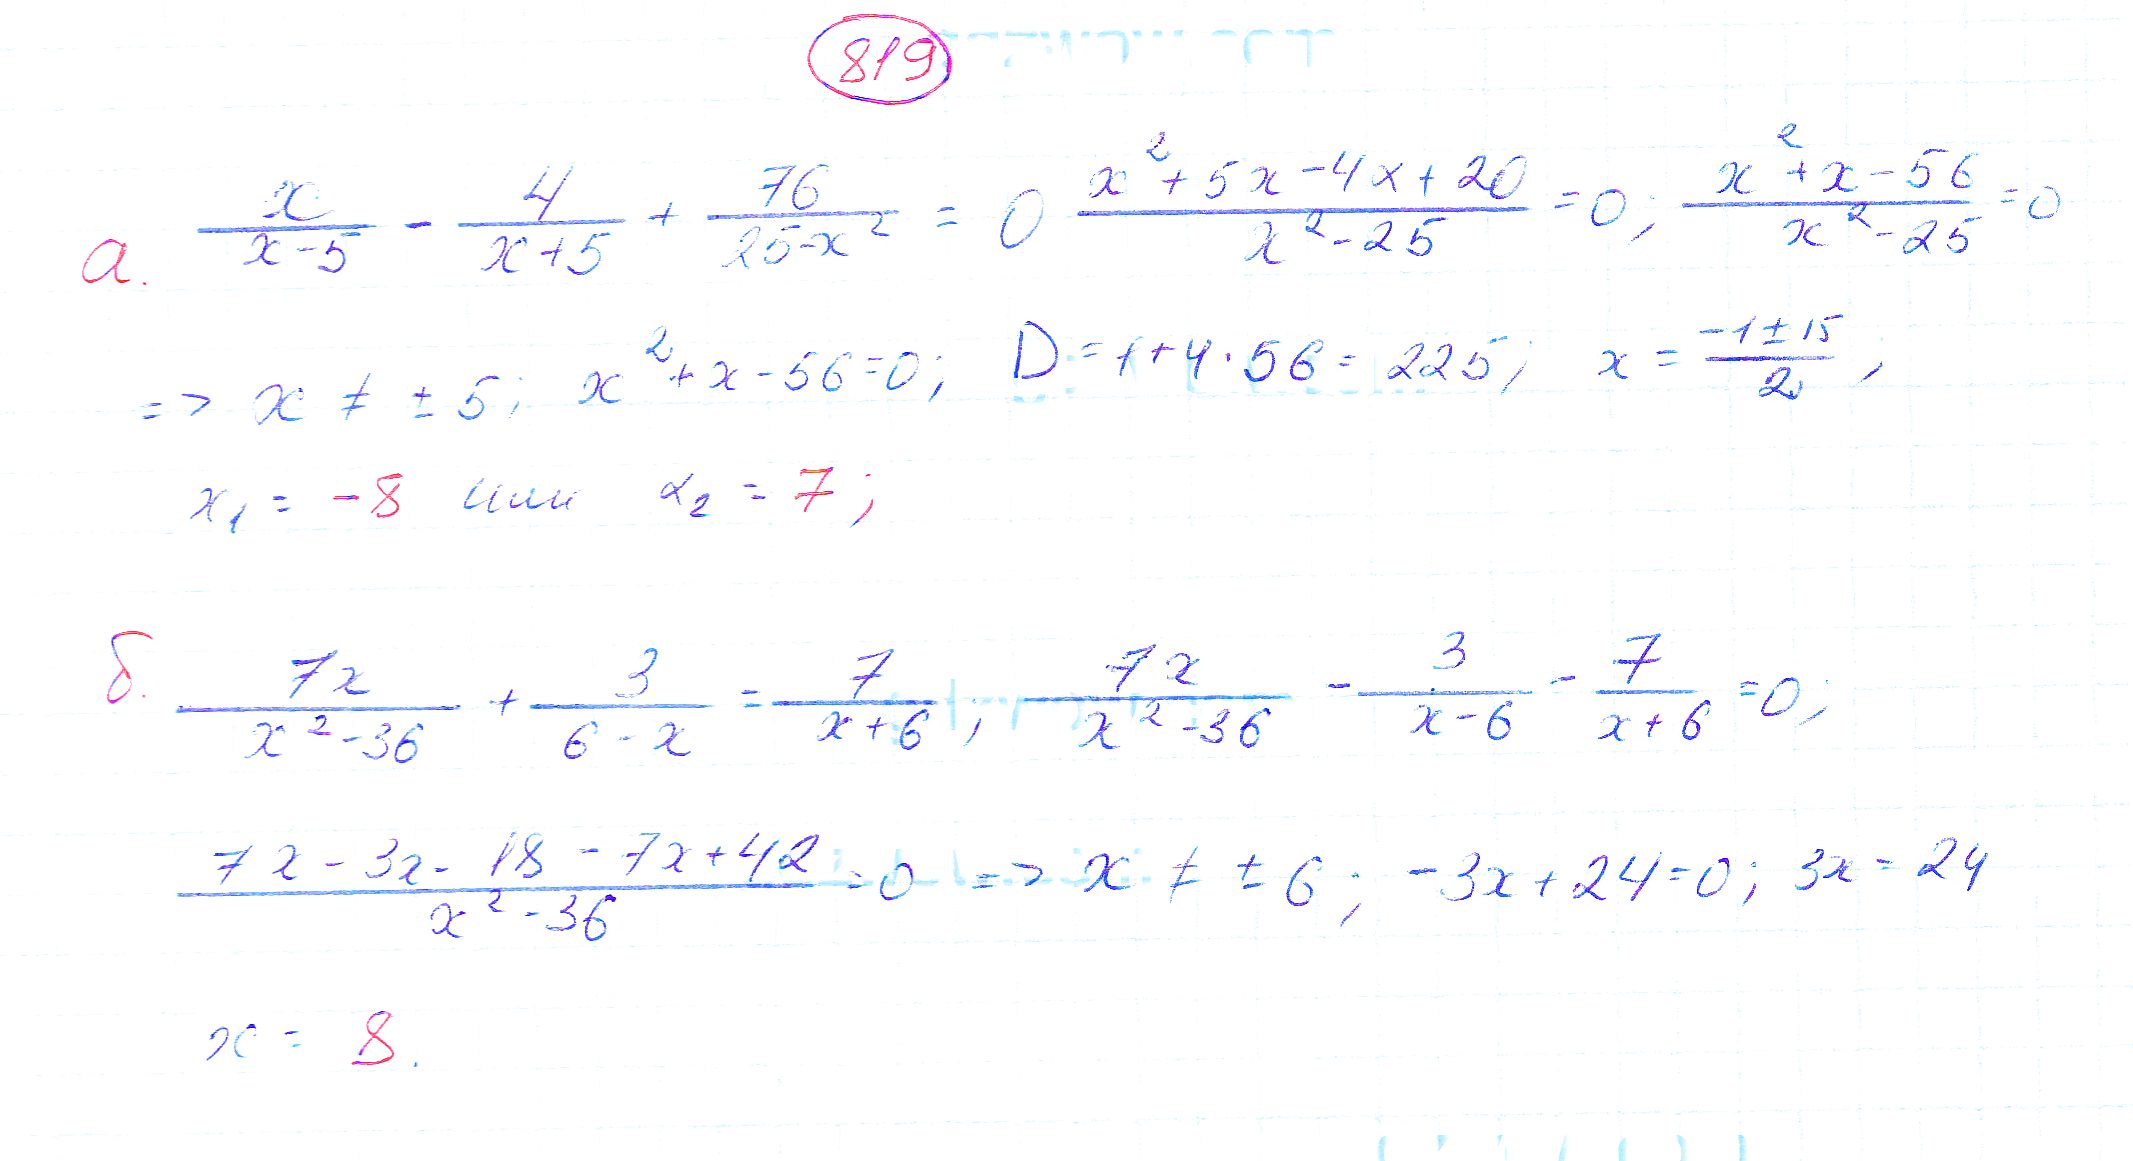 819
а. x/(x-5) - 4/(x+5) + 76/(25-x²) = 0 (x²+5x-4x+20)/(x²-25) = 0; (x²+x-56)/(x²-25) = 0
=> x ≠ ±5; x²+x-56=0; D=1+4·56=225; x = (-1±15)/2;
x₁ = -8 или x₂ = 7;
б. 7x/(x²-36) + 3/(6-x) = 7/(x+6); 7x/(x²-36) - 3/(x-6) - 7/(x+6) = 0;
(7x-3x-18-7x+42)/(x²-36) = 0 => x ≠ ±6; -3x+24=0; 3x=24
x = 8.